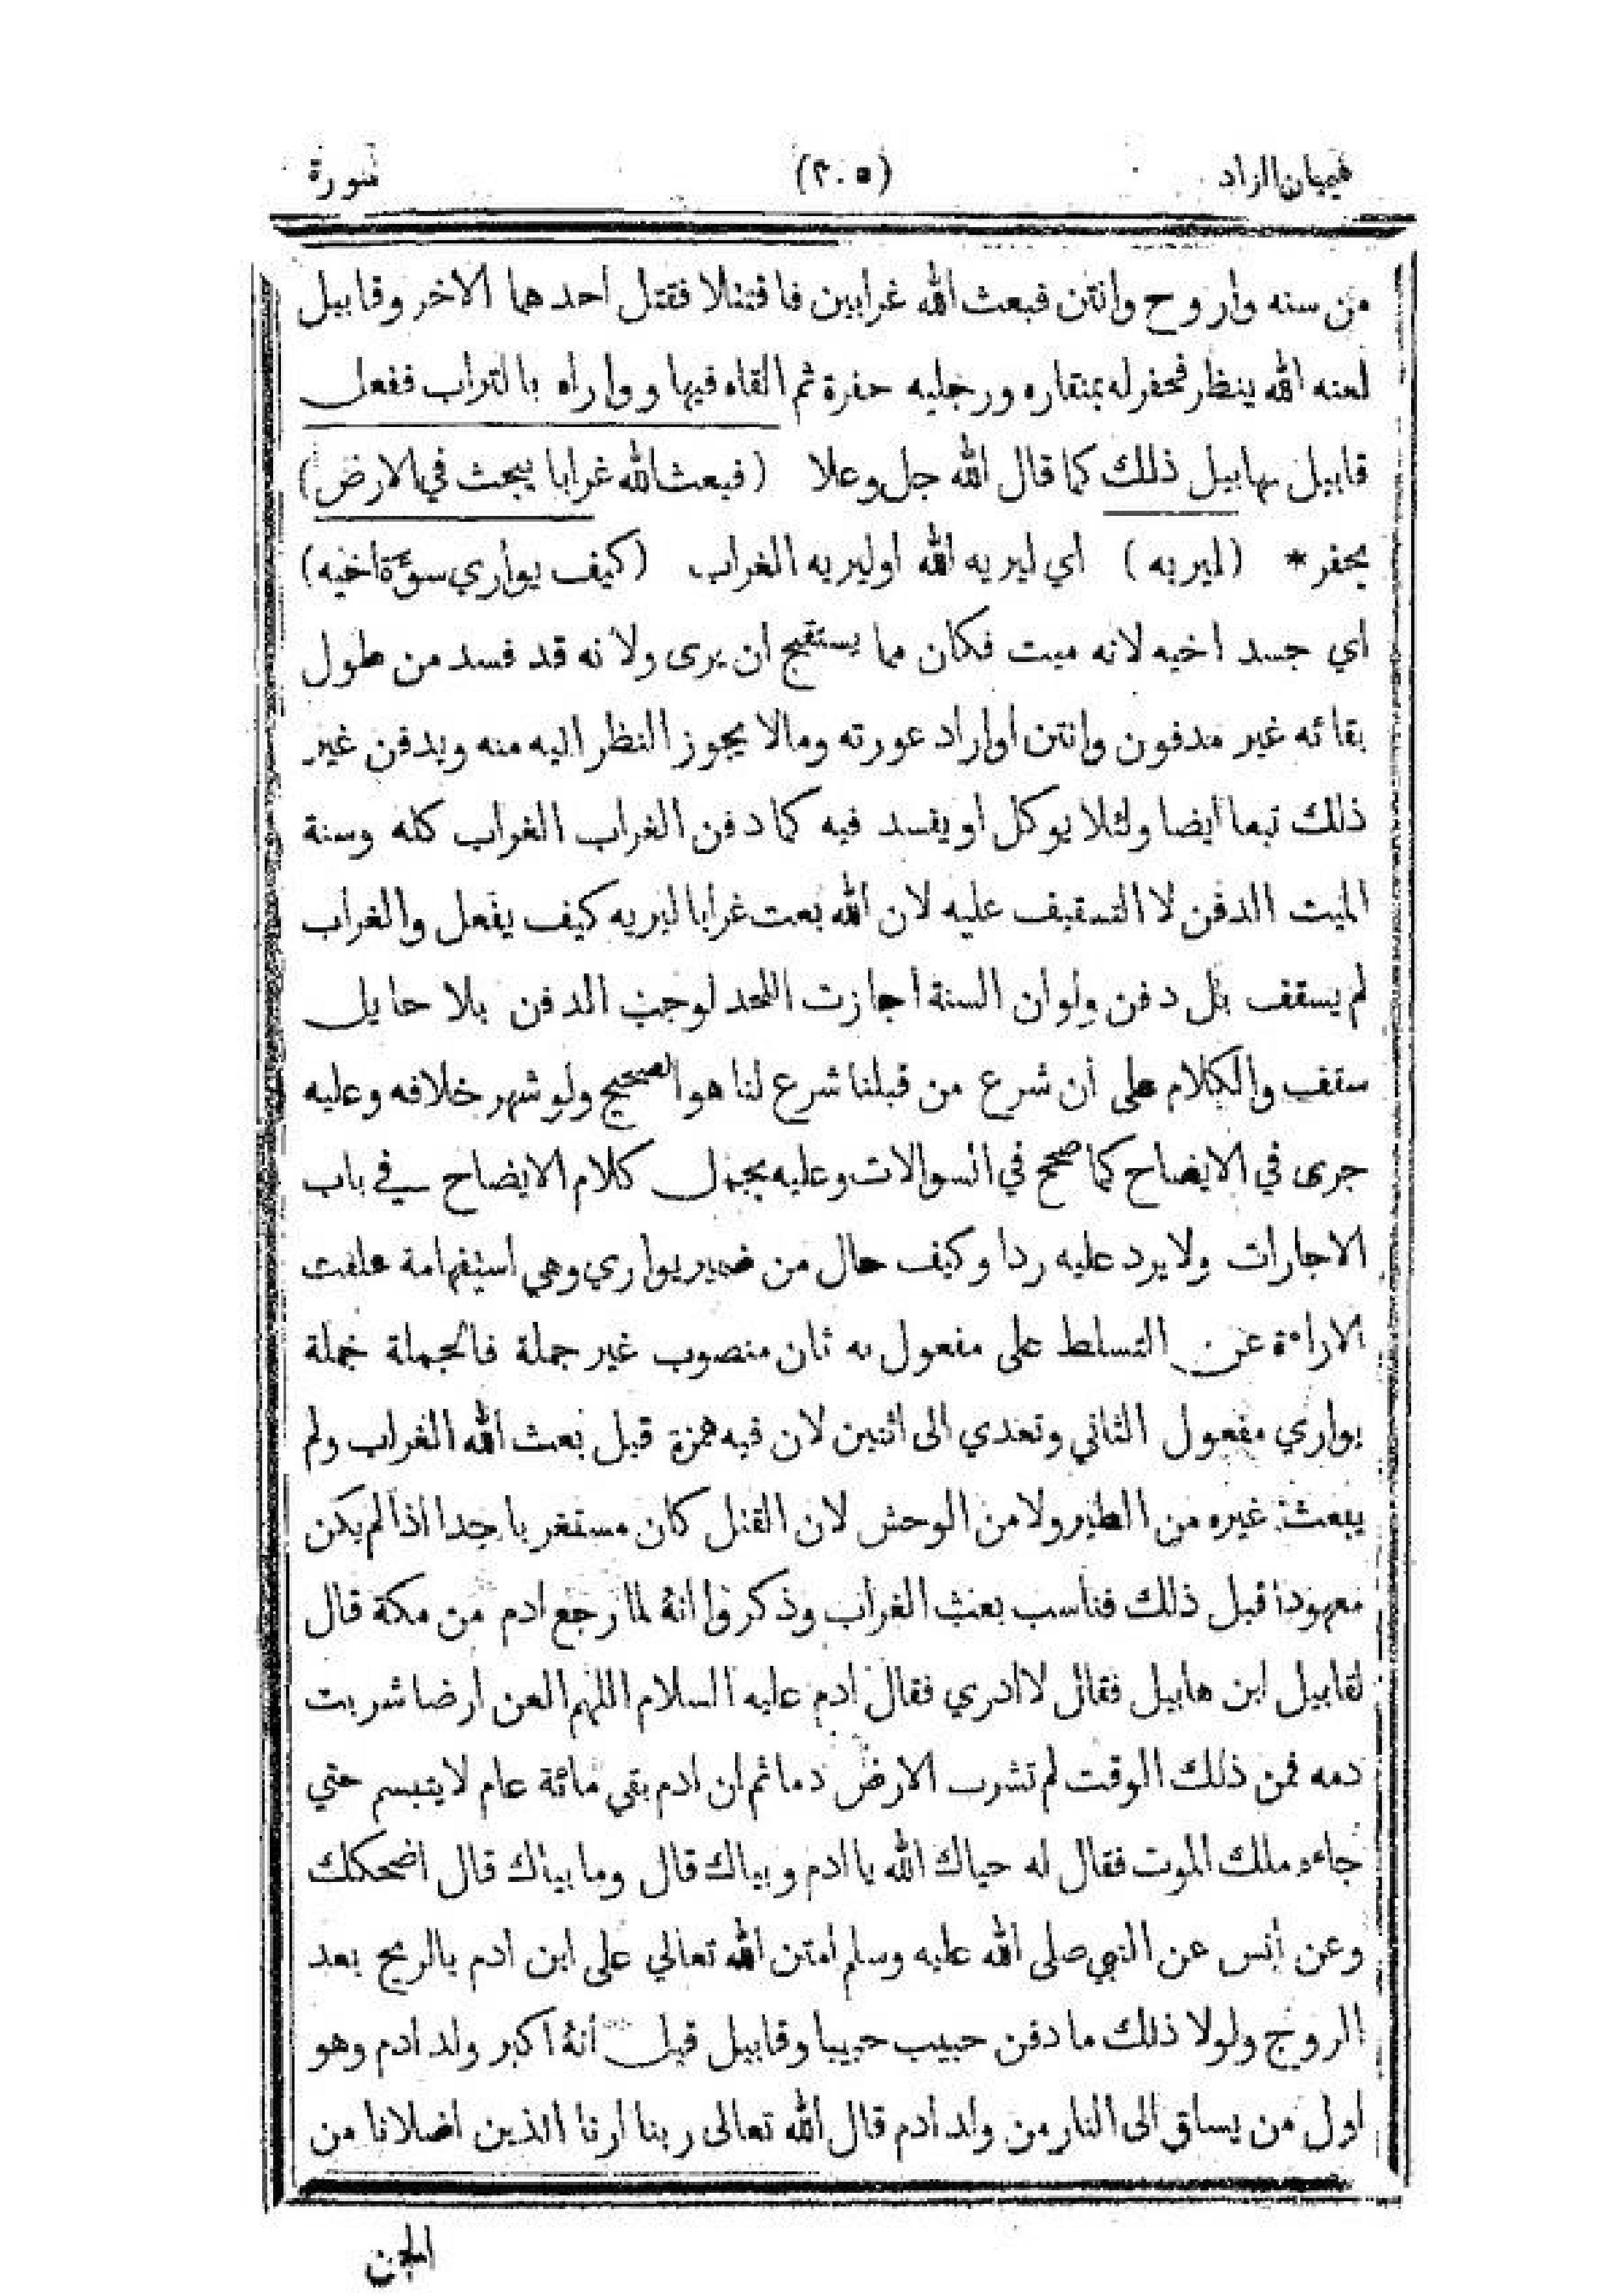 هيميان الزاد (٢٠٥) سورة
من سنه واروح وانتن فبعث الله غرابين فاقتتلا فقتل احدهما الاخر وقابيل
لعنه الله ينظر فحفر له بمنقاره ورجليه حفرة ثم القاه فيها وواراه بالتراب ففعل
قابيل بهابيل ذلك كما قال الله جل وعلا (فبعث الله غرابا يبحث في الارض)
يحفر * (ليريه) أي ليريه الله اوليريه الغراب (كيف يواري سوءة اخيه)
اي جسد اخيه لانه ميت فكان مما يستقبح ان يرى ولانه قد فسد من طول
بقائه غير مدفون وانتن اواراد عورته ومالا يجوز النظر اليه منه ويدفن غير
ذلك تبعا أيضا ولئلا يوكل او يفسد فيه كما دفن الغراب الغراب كله وسنة
الميت الدفن لا التسقيف عليه لان الله بعث غرابا ليريه كيف يفعل والغراب
لم يسقف بل دفن ولوان السنة اجازت اللحد لوجب الدفن بلا حايل
سقف والكلام على أن شرع من قبلنا شرع لنا هو الصحيح ولو شهر خلافه وعليه
جرى في الايضاح كما صحح في السوالات وعليه يحمل كلام الايضاح في باب
الاجارات ولا يرد عليه ردا وكيف حال من ضمير يواري وهي استفهامة علقت
الاراءة عن التسلط على مفعول به ثان منصوب غير جملة فالجملة جملة
يواري مفعول الثاني وتعدي الى اثنين لان فيه همزة قبل بعث الله الغراب ولم
يبعث غيره من الطير ولا من الوحش لان القتل كان مستغربا جدا اذا لم يكن
معهودا قبل ذلك فناسب بعث الغراب وذكروا انه لما رجع ادم من مكة قال
لقابيل اين هابيل فقال لا ادري فقال ادم عليه السلام اللهم العن ارضا شربت
دمه فمن ذلك الوقت لم تشرب الارض دما ثم ان ادم بقي مائة عام لا يتبسم حتي
جاءه ملك الموت فقال له حياك الله يا ادم وبياك قال وما بياك قال اضحكك
وعن أنس عن النبي صلى الله عليه وسلم امتن الله تعالي على ابن ادم بالريح بعد
الروح ولولا ذلك ما دفن حبيب حبيبا وقابيل قيل أنه اكبر ولد ادم وهو
اول من يساق الى النار من ولد أدم قال الله تعالى ربنا ارنا الذين اضلانا من
الجن